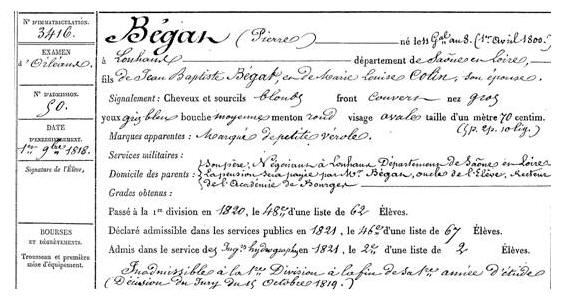 N° D'IMMATRICULATION.
3416.
EXAMEN
à Orléans
N° D'ADMISSION.
50.
DATE
D'ENREGISTREMENT.
1er 9bre 1818.
Signature de l'Élève,
BOURSES
ET DÉGRÈVEMENTS.
Trousseau et première
mise d'équipement.
Bégat (Pierre) né le 11 Gal an 8. (1er Avril 1800.)
à Louhans département de Saône en Loire,
fils de Jean Baptiste Bégat, en de Marie Louise Colin, son épouse.
Signalement: Cheveux et sourcils blonds front couvert nez gros
yeux gris bleu bouche moyenne menton rond visage ovale taille d'un mètre 70 centim.
(5p. 2p. 10 lig.)
Marques apparentes: Marqué de petite vérole.
Services militaires:
Domicile des parents: Son père, Négociant à Louhans Département de Saône en Loire
La pension sera payée par Mr. Bégat, oncle de l'élève, Recteur
de l'Académie de Bourges
Grades obtenus:
Passé à la 1re division en 1820, le 48me d'une liste de 62 Élèves.
Déclaré admissible dans les services publics en 1821, le 46me d'une liste de 67 Élèves.
Admis dans le service des Ingrs hydrographes en 1821, le 2me d'une liste de 2 Élèves.
Inadmissible à la 1re Division à la fin de sa 1re année d'étude
(Décision du Jury du 15 Octobre 1819.)